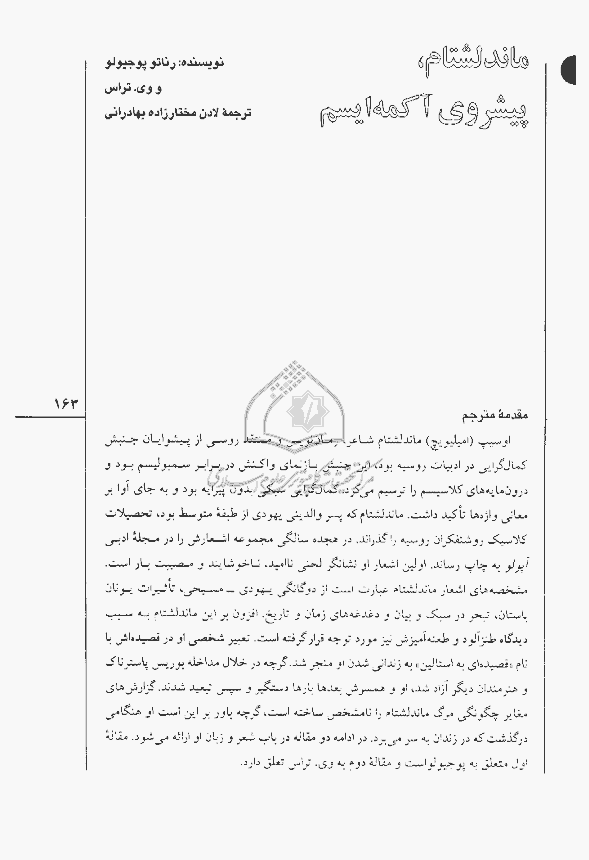 ماندلشتام،
پیشروی آکمه‌ایسم
نویسنده: رناتو پوجیولو
و وی. تراس
ترجمهٔ لادن مختارزاده بهادرانی
۱۶۳
مقدمهٔ مترجم
اوسیپ (امیلیویچ) ماندلشتام شاعر، رمان‌نویس و مستند روسی از پیشوایان جنبش
کمال‌گرایی در ادبیات روسیه بود، این جنبش بازنمای واکنش در برابر سمبولیسم بود و
درون‌مایه‌های کلاسیسم را ترسیم می‌کرد. کمال‌گرایی سبکی بدون پیرایه بود و به جای آوا بر
معانی واژه‌ها تأکید داشت. ماندلشتام که پسر والدینی یهودی از طبقهٔ متوسط بود، تحصیلات
کلاسیک روشنفکران روسیه را گذراند. در هجده سالگی مجموعه اشعارش را در مجلهٔ ادبی
آپولو به چاپ رساند. اولین اشعار او نشانگر لحنی ناامید، ناخوشایند و مصیبت بار است.
مشخصه‌های اشعار ماندلشتام عبارت است از دوگانگی یهودی ــ مسیحی، تأثیرات یونان
باستان، تبحر در سبک و بیان و دغدغه‌های زمان و تاریخ. افزون بر این ماندلشتام به سبب
دیدگاه طنزآلود و طعنه‌آمیزش نیز مورد توجه قرار گرفته است. تعبیر شخصی او در قصیده‌اش با
نام «قصیده‌ای به استالین» به زندانی شدن او منجر شد. گرچه در خلال مداخله بوریس پاسترناک
و هنرمندان دیگر آزاد شد، او و همسرش بعدها بارها دستگیر و سپس تبعید شدند. گزارش‌های
مغایر چگونگی مرگ ماندلشتام را نامشخص ساخته است، گرچه باور بر این است او هنگامی
درگذشت که در زندان به سر می‌برد. در ادامه دو مقاله در باب شعر و زبان او ارائه می‌شود. مقالهٔ
اول متعلق به پوجیولواست و مقالهٔ دوم به وی. تراس تعلق دارد.